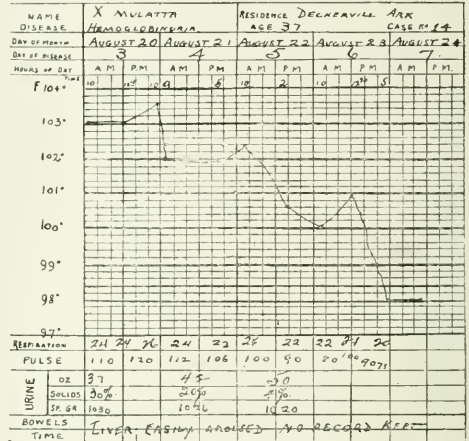 NAME X MULATTA RESIDENCE DECKERVILL ARK
DISEASE HEMOGLOBINURIA AGE 37 CASE No 14
DAY OF MONTH AUGUST 20 AUGUST 21 AUGUST 22 AUGUST 23 AUGUST 24
DAY OF DISEASE 3 4 5 6 7
HOURS OF DAY AM PM AM PM AM PM AM PM AM PM
TIME 10 10 9 6 10 2 10 5
F 104°
103°
102°
101°
100°
99°
98°
97°
RESPIRATION 24 24 26 24 22 25 22 22 24 20
PULSE 110 120 112 106 100 90 80 100 90 75
URINE
OZ 37 45 50
SOLIDS 30% 20%
SP. GR 1030 1026 1020
BOWELS LIVER EASILY AROUSED NO RECORD KEPT
TIME